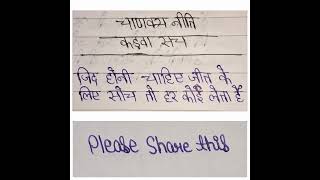 चाणक्य नीति
कड़वा सच
जिद होनी चाहिए जीत के
लिए सोच तो हर कोई लेता है
Please Share this